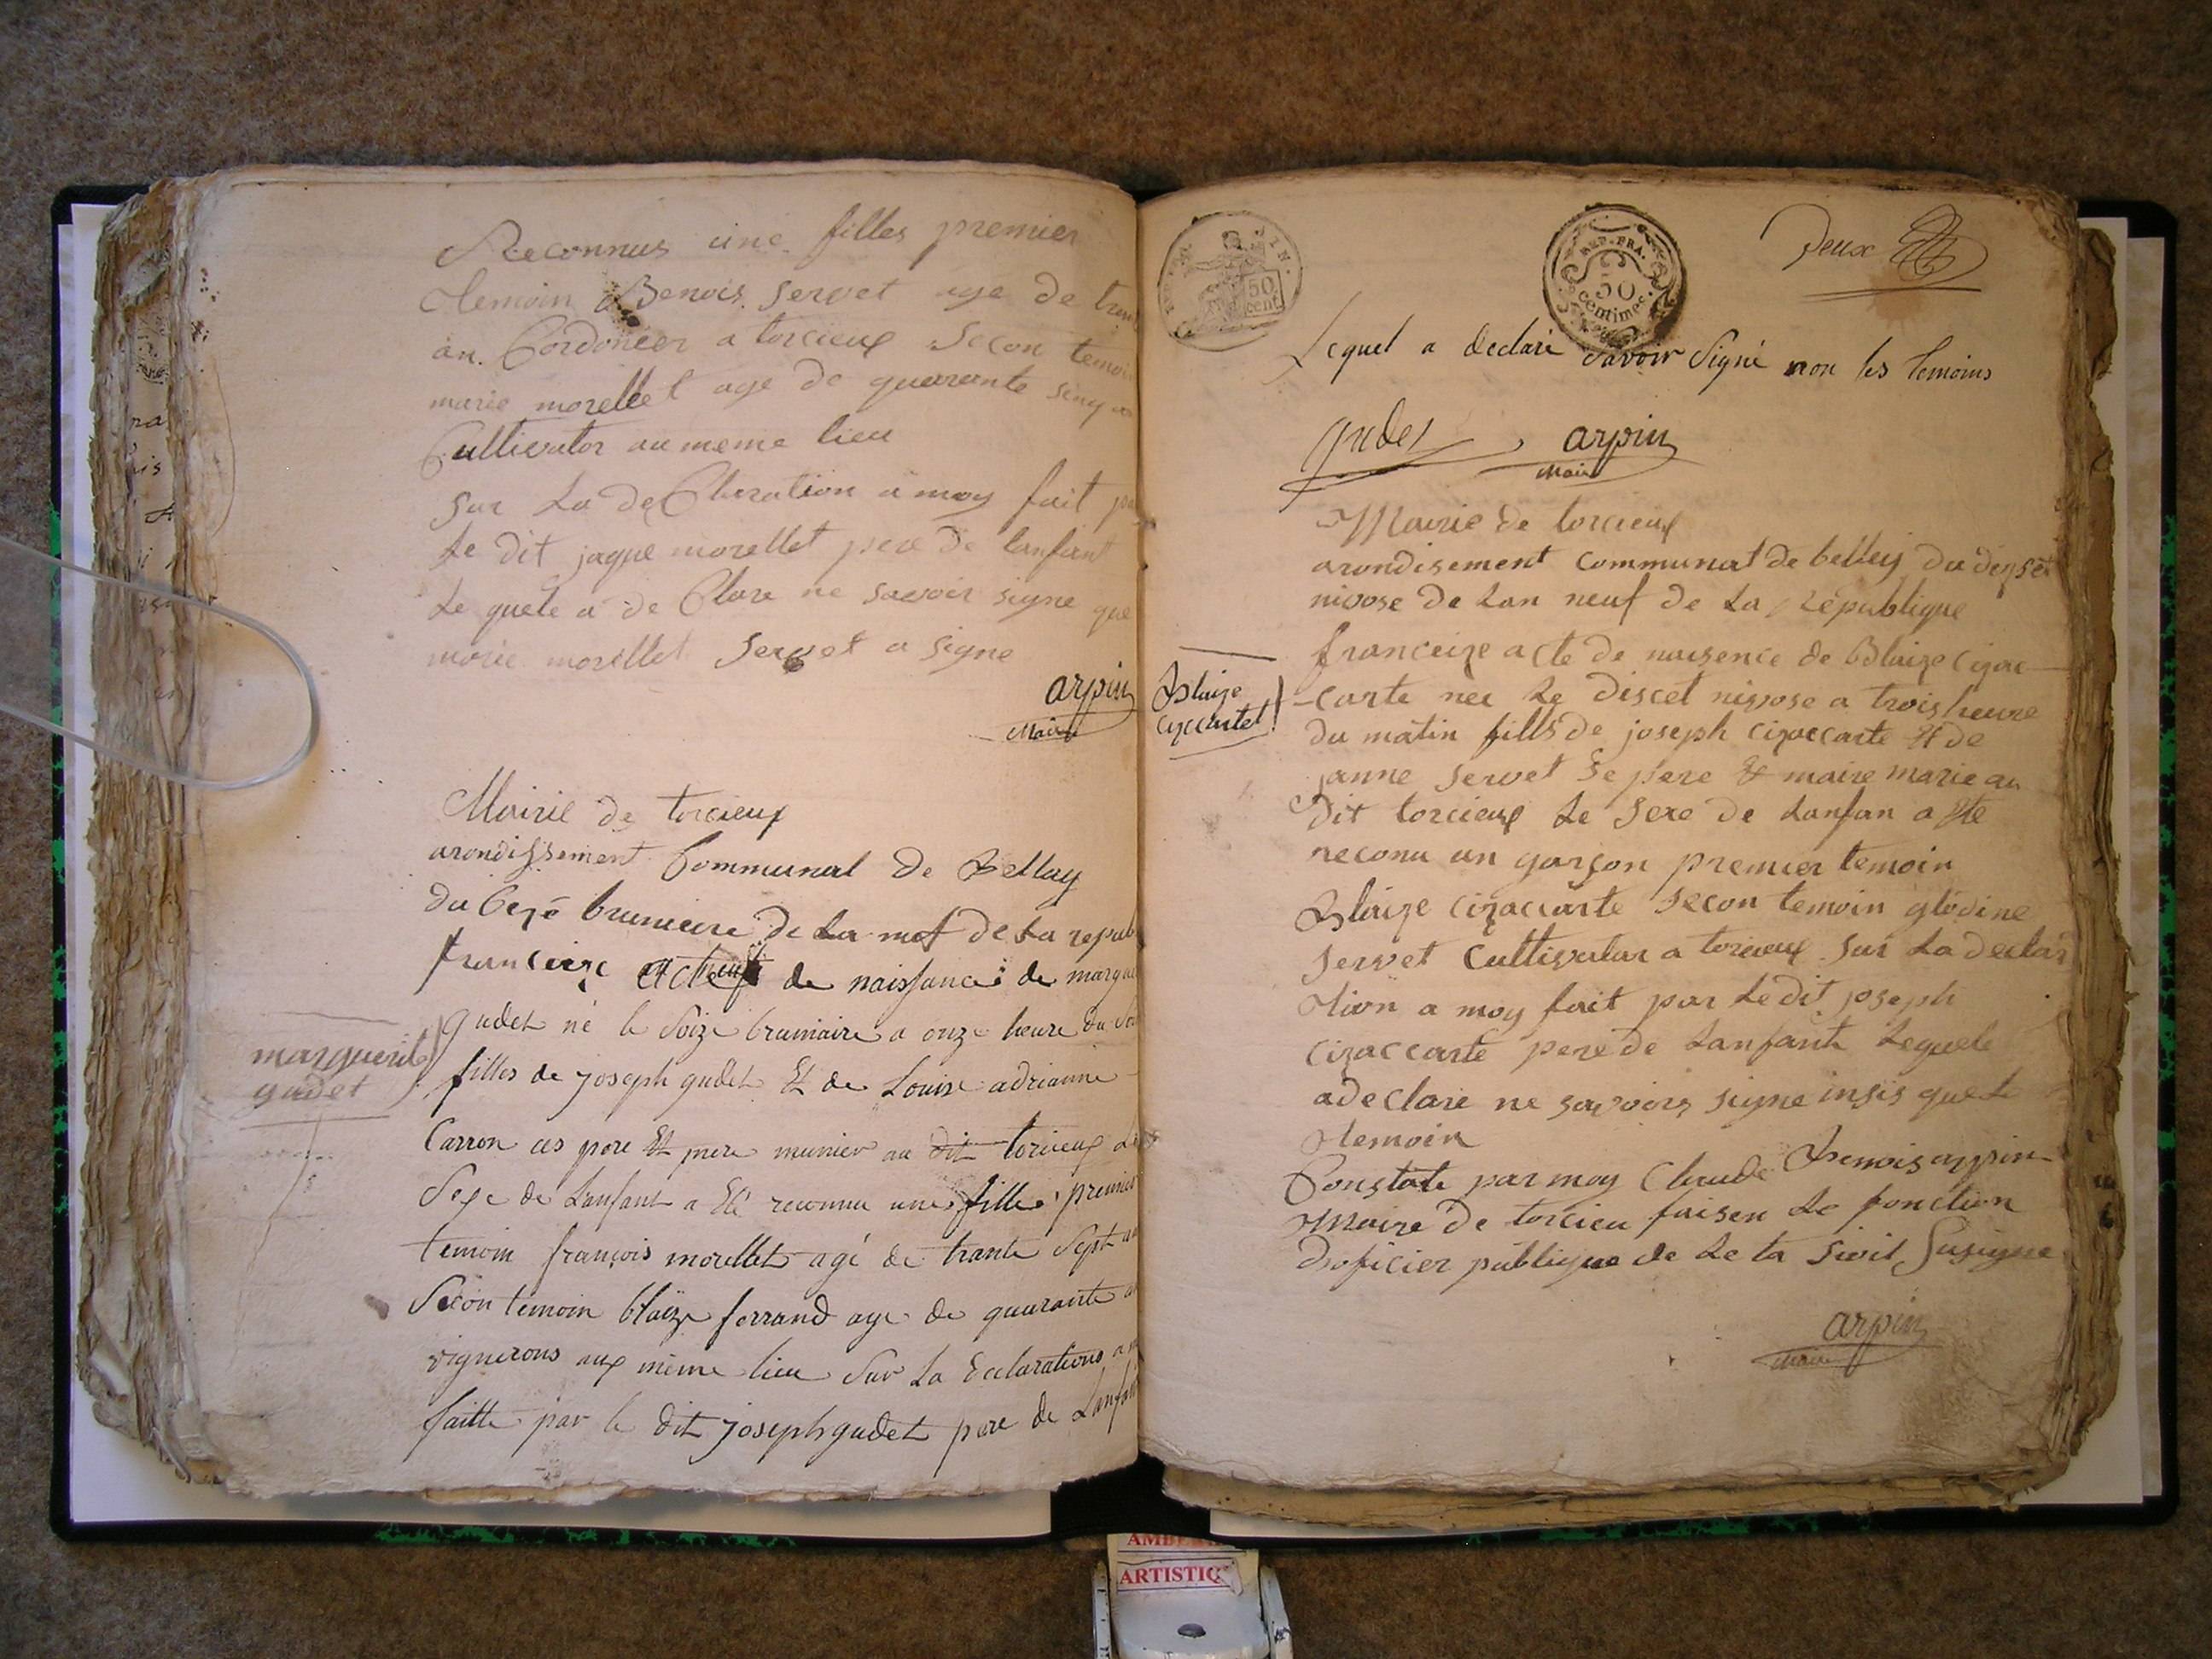 Reconnus une filles premier
temoin Benois servet age de
an Cordonier a torcieux secon temoin
marie morellet age de quarante sinq
Cultivator au meme lieu
sur La de Claration a moy fait
Le dit jaque morellet pere de lanfant
Le quele a de Clare ne savoir signe que
marie morellet servet a signe
arpin
Maire
Mairie de torcieux
arondissement Communal de Bellay
du brumere de La republ
franceize acte de naissance de
marguerit
gudet
gudet né le Seize brumaire a onze heure du
filles de joseph gudet Et de Louise adrianne
Carron ces pere Et mere munier au dit torcieux
Sexe de Lanfant a Eté reconnu une fille premier
temoin françois morellet agé de trante Sept
Secon temoin blaize ferrand age de quarante
vignerons aux même lieu Sur La declarations
faitte par le dit joseph gudet pere de Lanfant
REP. FRA.
50
cent.
50
centimes
Deux
Lequel a declaré Savoir Signé non les temoins
gudet arpin
Maire
Mairie de torcieux
arondisement Communal de belley du
nivose de Lan neuf de La republique
franceize acte de naisence de Blaize cizac
Blaize
cizaccarte nee Le nivose a trois heure
du matin fills de joseph cizaccarte Et de
janne servet se pere Et maire marie au
Dit torcieux Le sexe de Lanfan a ete
reconu un garçon premier temoin
Blaize cizaccarte secon temoin glodine
servet Cultivator a torcieux sur La declar
tion a moy fait par Le dit joseph
cizaccarte pere de Lanfant Lequele
a declare ne savoir signe insis que Le
temoin
Constate par moy Claude Benois arpin
Maire de torcieu faisen Le fonction
doficier publique de Le ta sivil susigne
arpin
Maire
ARTISTIQ